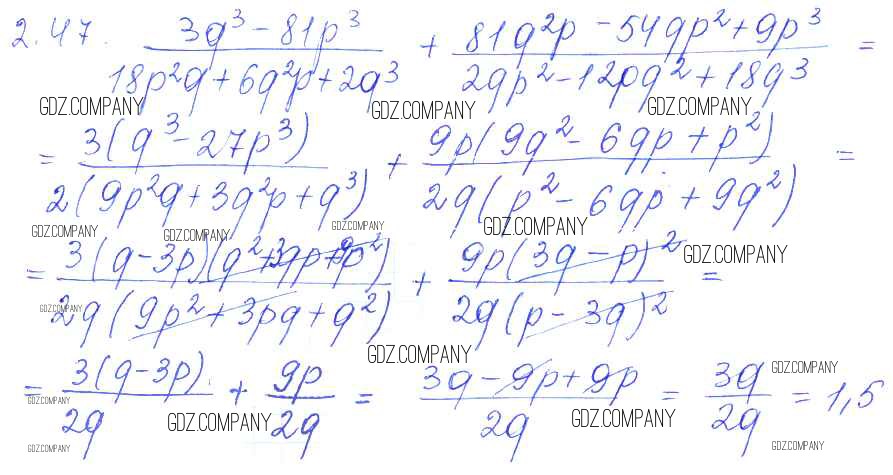 2.47. (3q³ − 81p³)/(18p²q + 6q²p + 2q³) + (81q²p − 54qp² + 9p³)/(2qp² − 12pq² + 18q³) =
GDZ.COMPANY GDZ.COMPANY GDZ.COMPANY
= 3(q³ − 27p³)/2(9p²q + 3q²p + q³) + 9p(9q² − 6qp + p²)/2q(p² − 6qp + 9q²) =
GDZ.COMPANY GDZ.COMPANY GDZ.COMPANY GDZ.COMPANY
= 3(q − 3p)(q² + 3qp + 9p²)/2q(9p² + 3pq + q²) + 9p(3q − p)²/2q(p − 3q)² =
GDZ.COMPANY GDZ.COMPANY
GDZ.COMPANY
= 3(q − 3p)/2q + 9p/2q = (3q − 9p + 9p)/2q = 3q/2q = 1,5
GDZ.COMPANY GDZ.COMPANY GDZ.COMPANY GDZ.COMPANY
GDZ.COMPANY GDZ.COMPANY